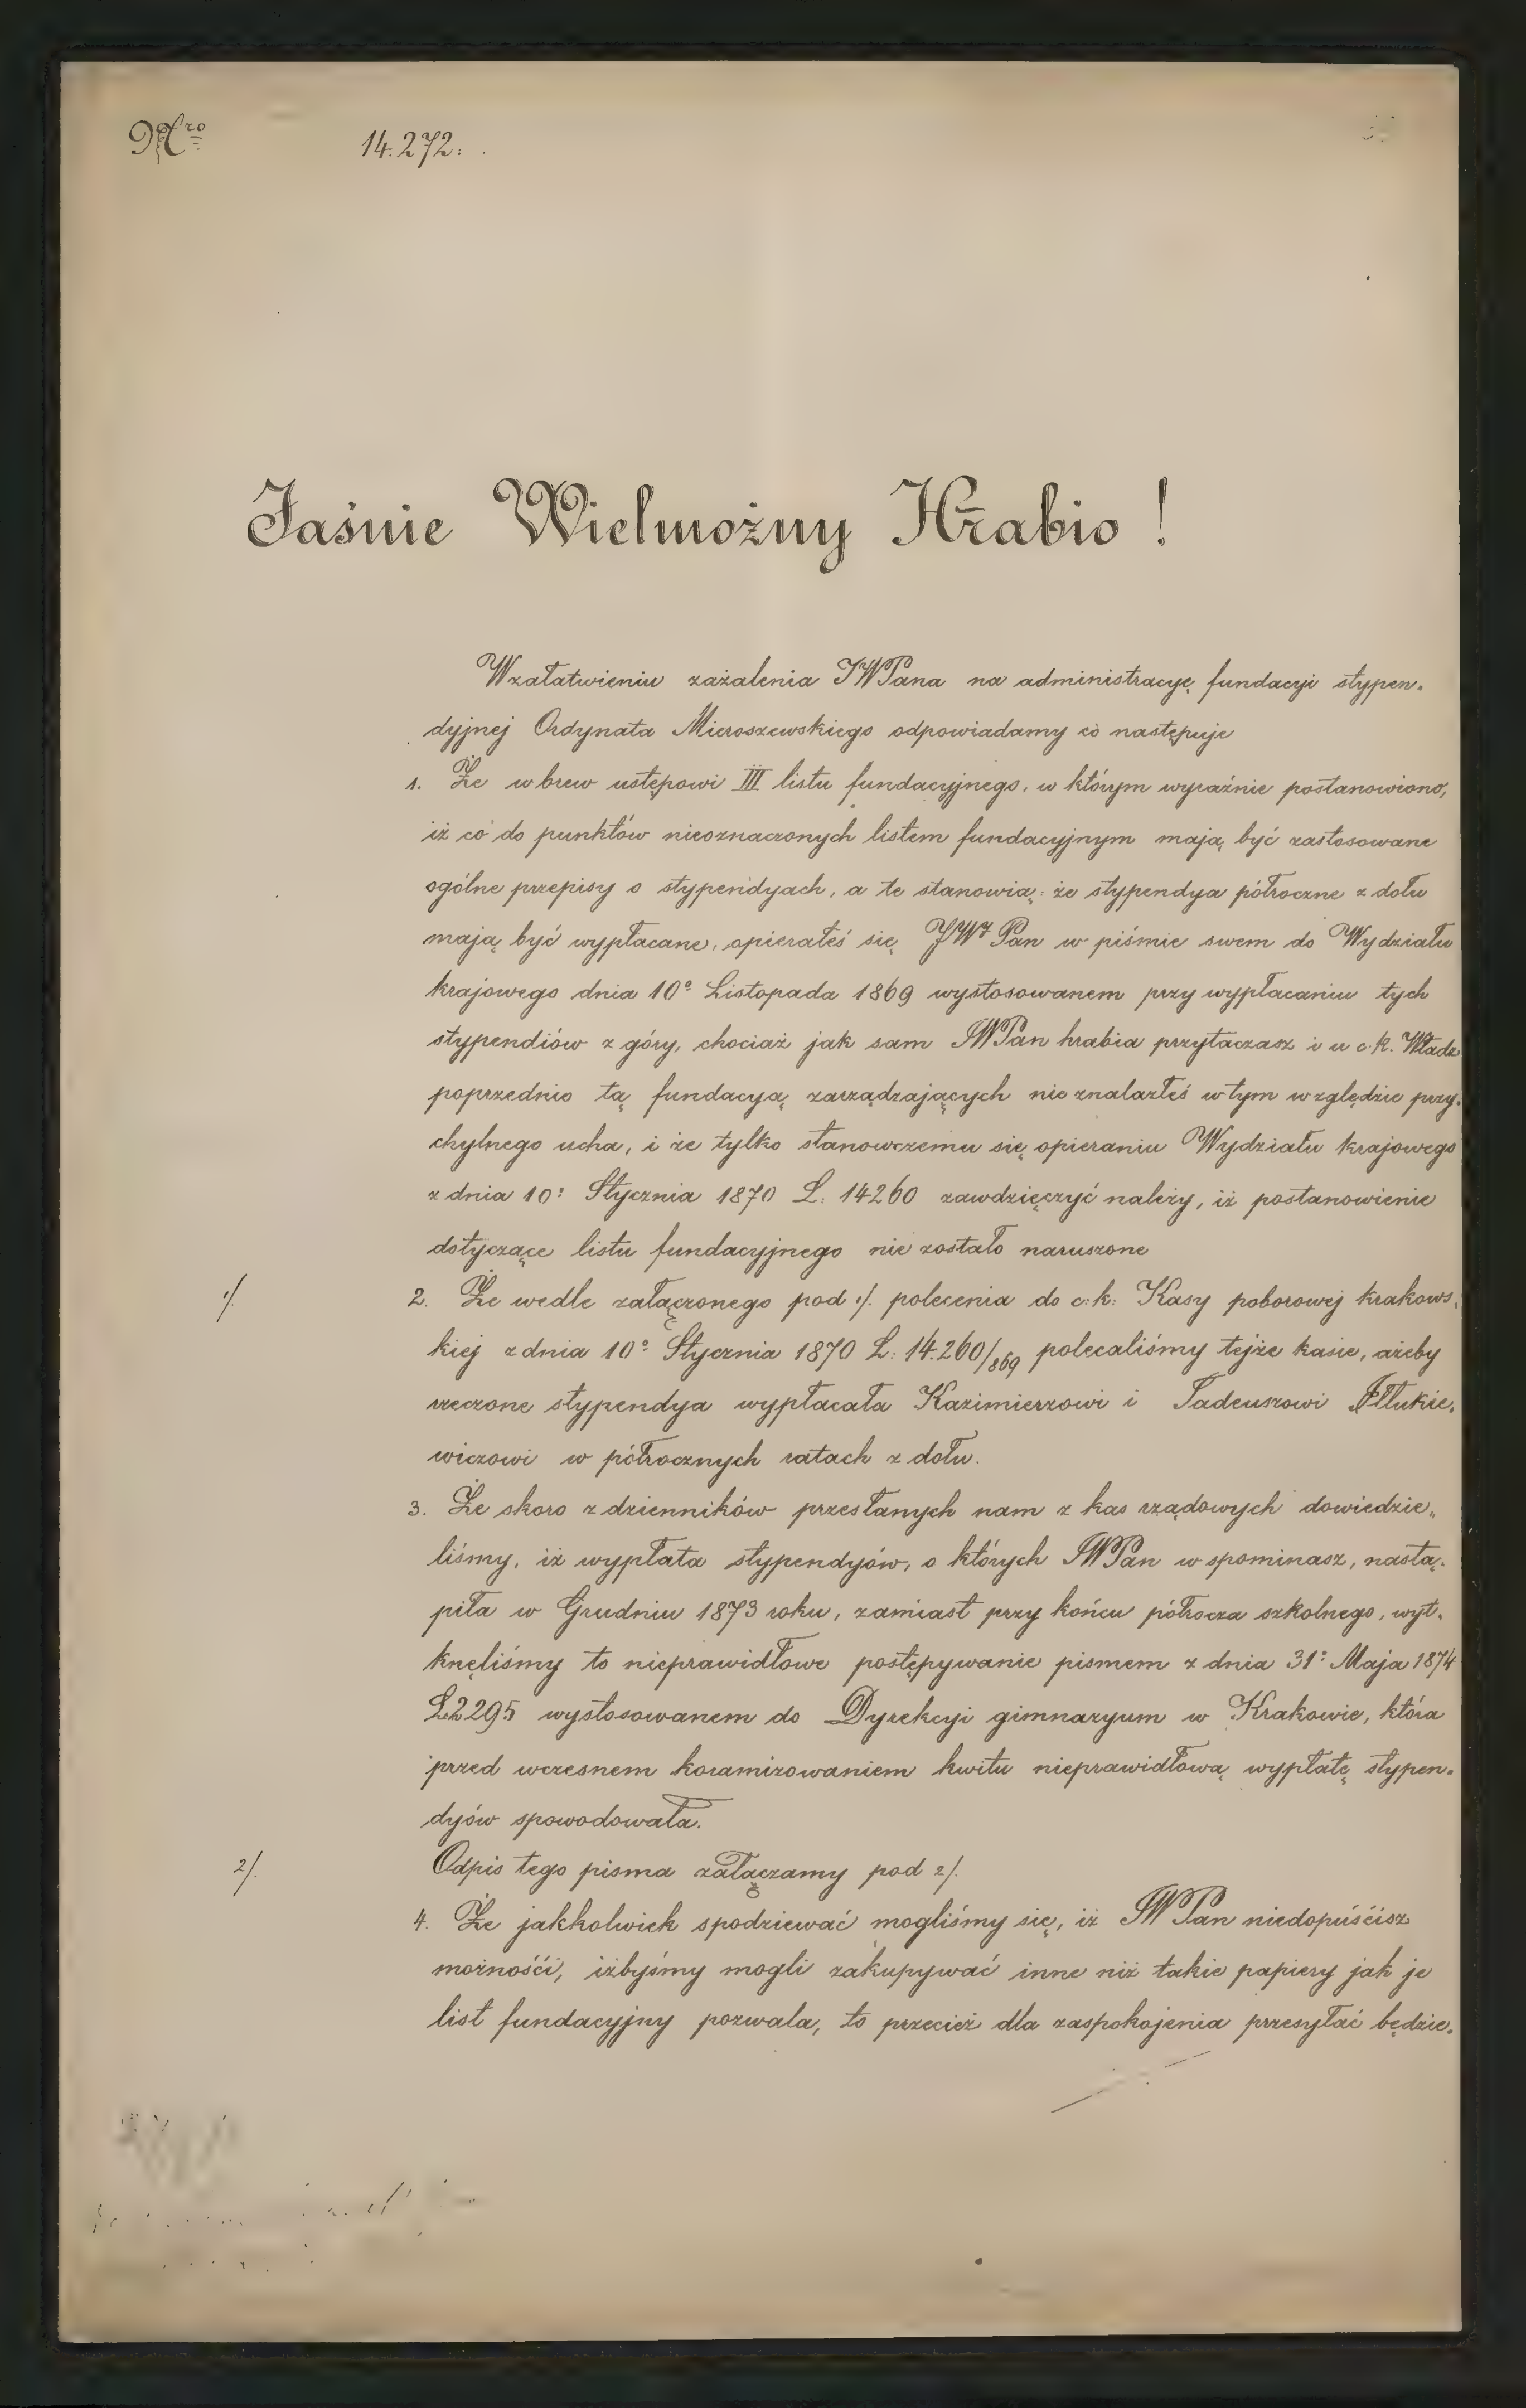 Nro 14.272.
Jaśnie Wielmożny Hrabio !
W załatwieniu zażalenia JWPana na administracyę fundacyi stypen-
dyjnej Ordynata Mieroszewskiego odpowiadamy co następuje
1. Że wbrew ustępowi III listu fundacyjnego, w którym wyraźnie postanowiono,
iż co do punktów nieoznaczonych listem fundacyjnym mają być zastosowane
ogólne przepisy o stypendyach, a te stanowią: że stypendya półroczne z dołu
mają być wypłacane, opierałeś się JW Pan w piśmie swem do Wydziału
krajowego dnia 10º Listopada 1869 wystosowanem przy wypłacaniu tych
stypendiów z góry, chociaż jak sam JWPan hrabia przytaczasz i u c.k. Władz
poprzednio tą fundacyą zarządzających nie znalazłeś w tym względzie przy-
chylnego ucha, i że tylko stanowczemu się opieraniu Wydziału krajowego
z dnia 10º Stycznia 1870 L. 14260 zawdzięczyć należy, iż postanowienie
dotyczące listu fundacyjnego nie zostało naruszone
1/.
2. Że wedle załączonego pod 1/. polecenia do c.k. Kasy poborowej krakows-
kiej z dnia 10º Stycznia 1870 L: 14.260/869 polecaliśmy tejże kasie, ażeby
rzeczone stypendya wypłacała Kazimierzowi i Tadeuszowi
wiczowi w półrocznych ratach z dołu.
3. Że skoro z dzienników przesłanych nam z kas rządowych dowiedzie„
liśmy, iż wypłata stypendyów, o których JWPan wspominasz, nastą-
piła w Grudniu 1873 roku, zamiast przy końcu półrocza szkolnego, wyt-
knęliśmy to nieprawidłowe postępywanie pismem z dnia 31º Maja 1874
L2295 wystosowanem do Dyrekcyi gimnazyum w Krakowie, która
przed wczesnem koramizowaniem kwitu nieprawidłową wypłatę stypen-
dyów spowodowała.
2/.
Odpis tego pisma załączamy pod 2/.
4. Że jakkolwiek spodziewać mogliśmy się, iż JW Pan niedopuścisz
możności, iżbyśmy mogli zakupywać inne niż takie papiery jak je
list fundacyjny pozwala, to przecież dla zaspokojenia przesyłać będzie-